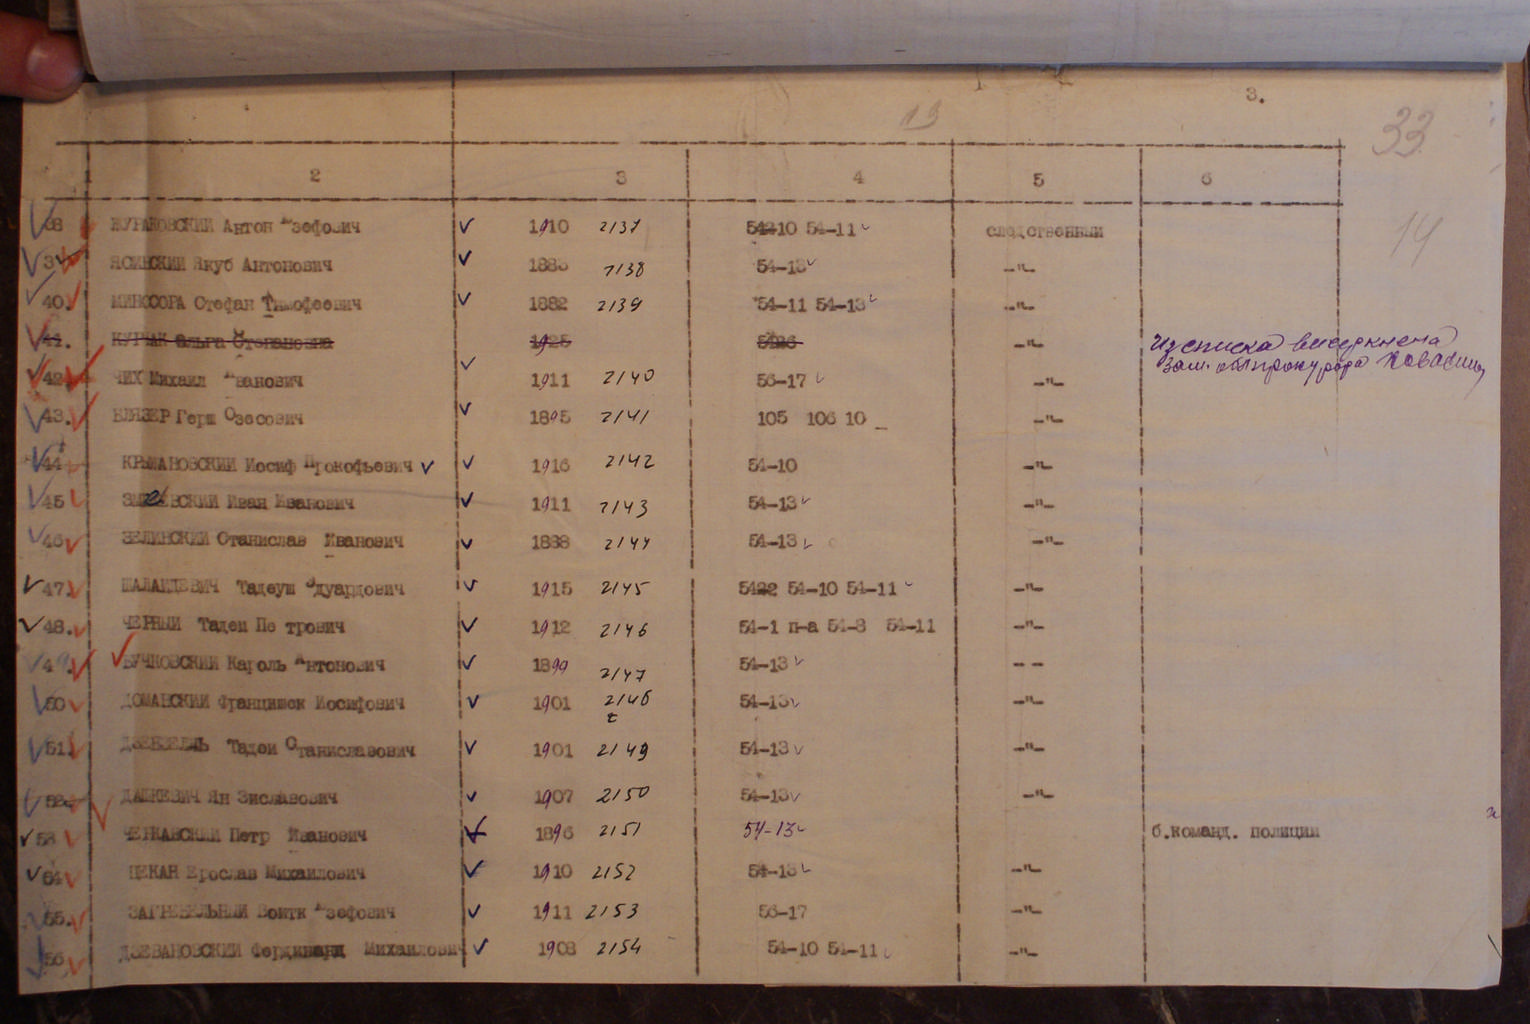 13
3.
33
14
1 2 3 4 5 6
38 ЖУРАКОВСКИЙ Антон Юзефович 1910 2137 54210 54-11 следственный
39 ЯСИНСКИЙ Якуб Антонович 1883 2138 54-13 -"-
40. Стефан Тимофеевич 1882 2139 54-11 54-13 -"-
41. Ольга Степановна 1925 -"- Из списка вычеркнена
зам. облпрокурора
42 ЧИХ Михаил Иванович 1911 2140 56-17 -"-
43. КЛЯЗЕР Герш Озесович 1895 2141 105 106 10 -"-
44 КРЫЖАНОВСКИЙ Иосиф Прокофьевич 1916 2142 54-10 -"-
45 Иван Иванович 1911 2143 54-13 -"-
46 ЗЕЛИНСКИЙ Станислав Иванович 1888 2144 54-13 -"-
47. ШАЛАНДЕВИЧ Тадеуш Эдуардович 1915 2145 5422 54-10 54-11 -"-
48. ЧЕРНЫЙ Тадеи Пе трович 1912 2146 54-1 п-а 54-8 54-11 -"-
49. БУЧКОВСКИЙ Кароль Антонович 1899 2147 54-13 - -
50 ДОМАНСКИЙ Францишек Иосифович 1901 2148 54-13 -"-
51. Тадеи Станиславович 1901 2149 54-13 -"-
52 ДАШКЕВИЧ Ян Зиславович 1907 2150 54-13 -"-
53 ЧЕРКАВСКИЙ Петр Иванович 1896 2151 54-13 б.команд. полиции
54 ЦЕКАН Ерослав Михаилович 1910 2152 54-13 -"-
55. ЗАГРЕБЕЛЬНЫЙ Воитк Юзефович 1911 2153 56-17 -"-
56 ДЗЕВАНОВСКИЙ Фердинанд Михаилович 1908 2154 54-10 54-11 -"-